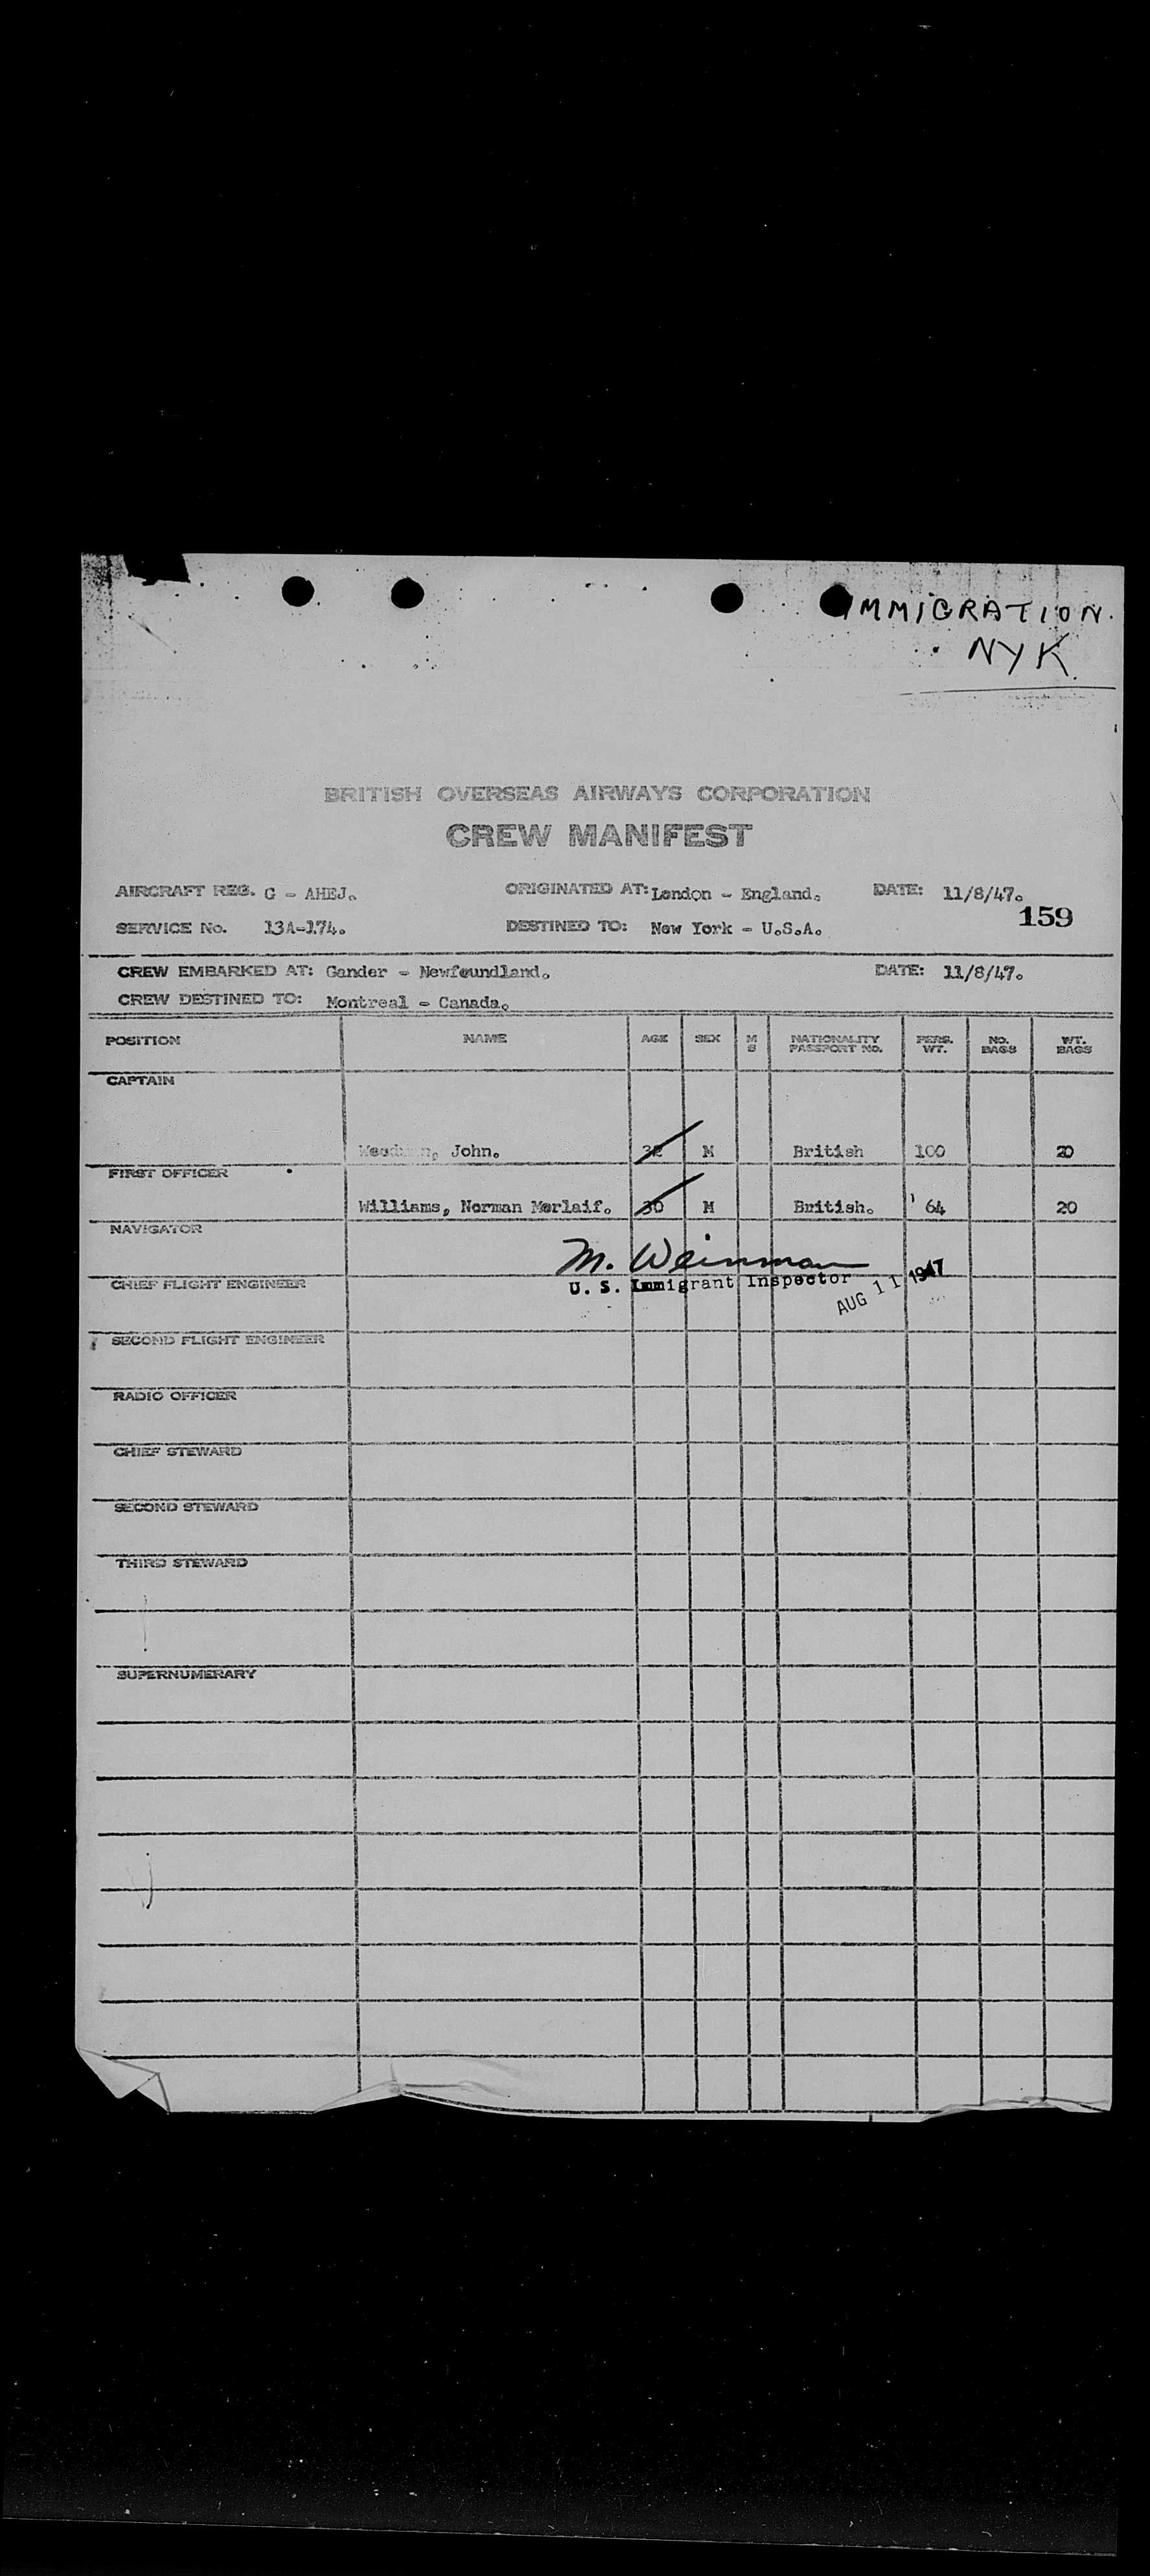 IMMIGRATION.
NYK.
BRITISH OVERSEAS AIRWAYS CORPORATION
CREW MANIFEST
AIRCRAFT REG. G - AHEJ. ORIGINATED AT: London - England. DATE: 11/8/47.
159
SERVICE No. 13A-174. DESTINED TO: New York - U.S.A.
CREW EMBARKED AT: Gander - Newfoundland. DATE: 11/8/47.
CREW DESTINED TO: Montreal - Canada.
POSITION NAME AGE SEX M S NATIONALITY PASSPORT NO. PERS. WT. NO. BAGS WT. BAGS
CAPTAIN
John. 32 M British 100 20
FIRST OFFICER
Williams, Norman Merlaif. 30 M British. 64 20
NAVIGATOR
M. Weinman
CHIEF FLIGHT ENGINEER
U. S. Immigrant Inspector
AUG 11 1947
SECOND FLIGHT ENGINEER
RADIO OFFICER
CHIEF STEWARD
SECOND STEWARD
THIRD STEWARD
SUPERNUMERARY